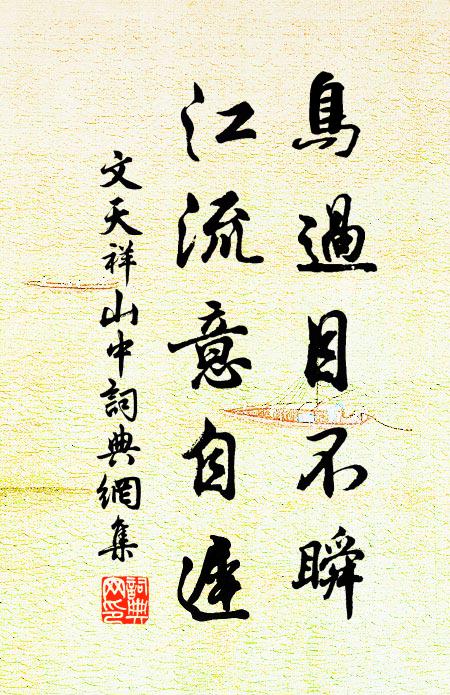 鳥過目不瞬
江流意自遲
文天祥山中詞典網集
詞典网印